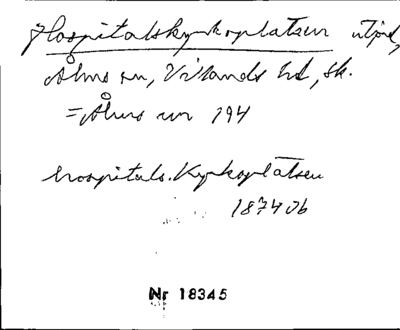 Hospitalskyrkoplatsen utjord,
Åhus sn, Villands hd, Sk.
= Åhus sn 194
hospitals.Kyrkoplatsen
1874 Jb
Nr 18345